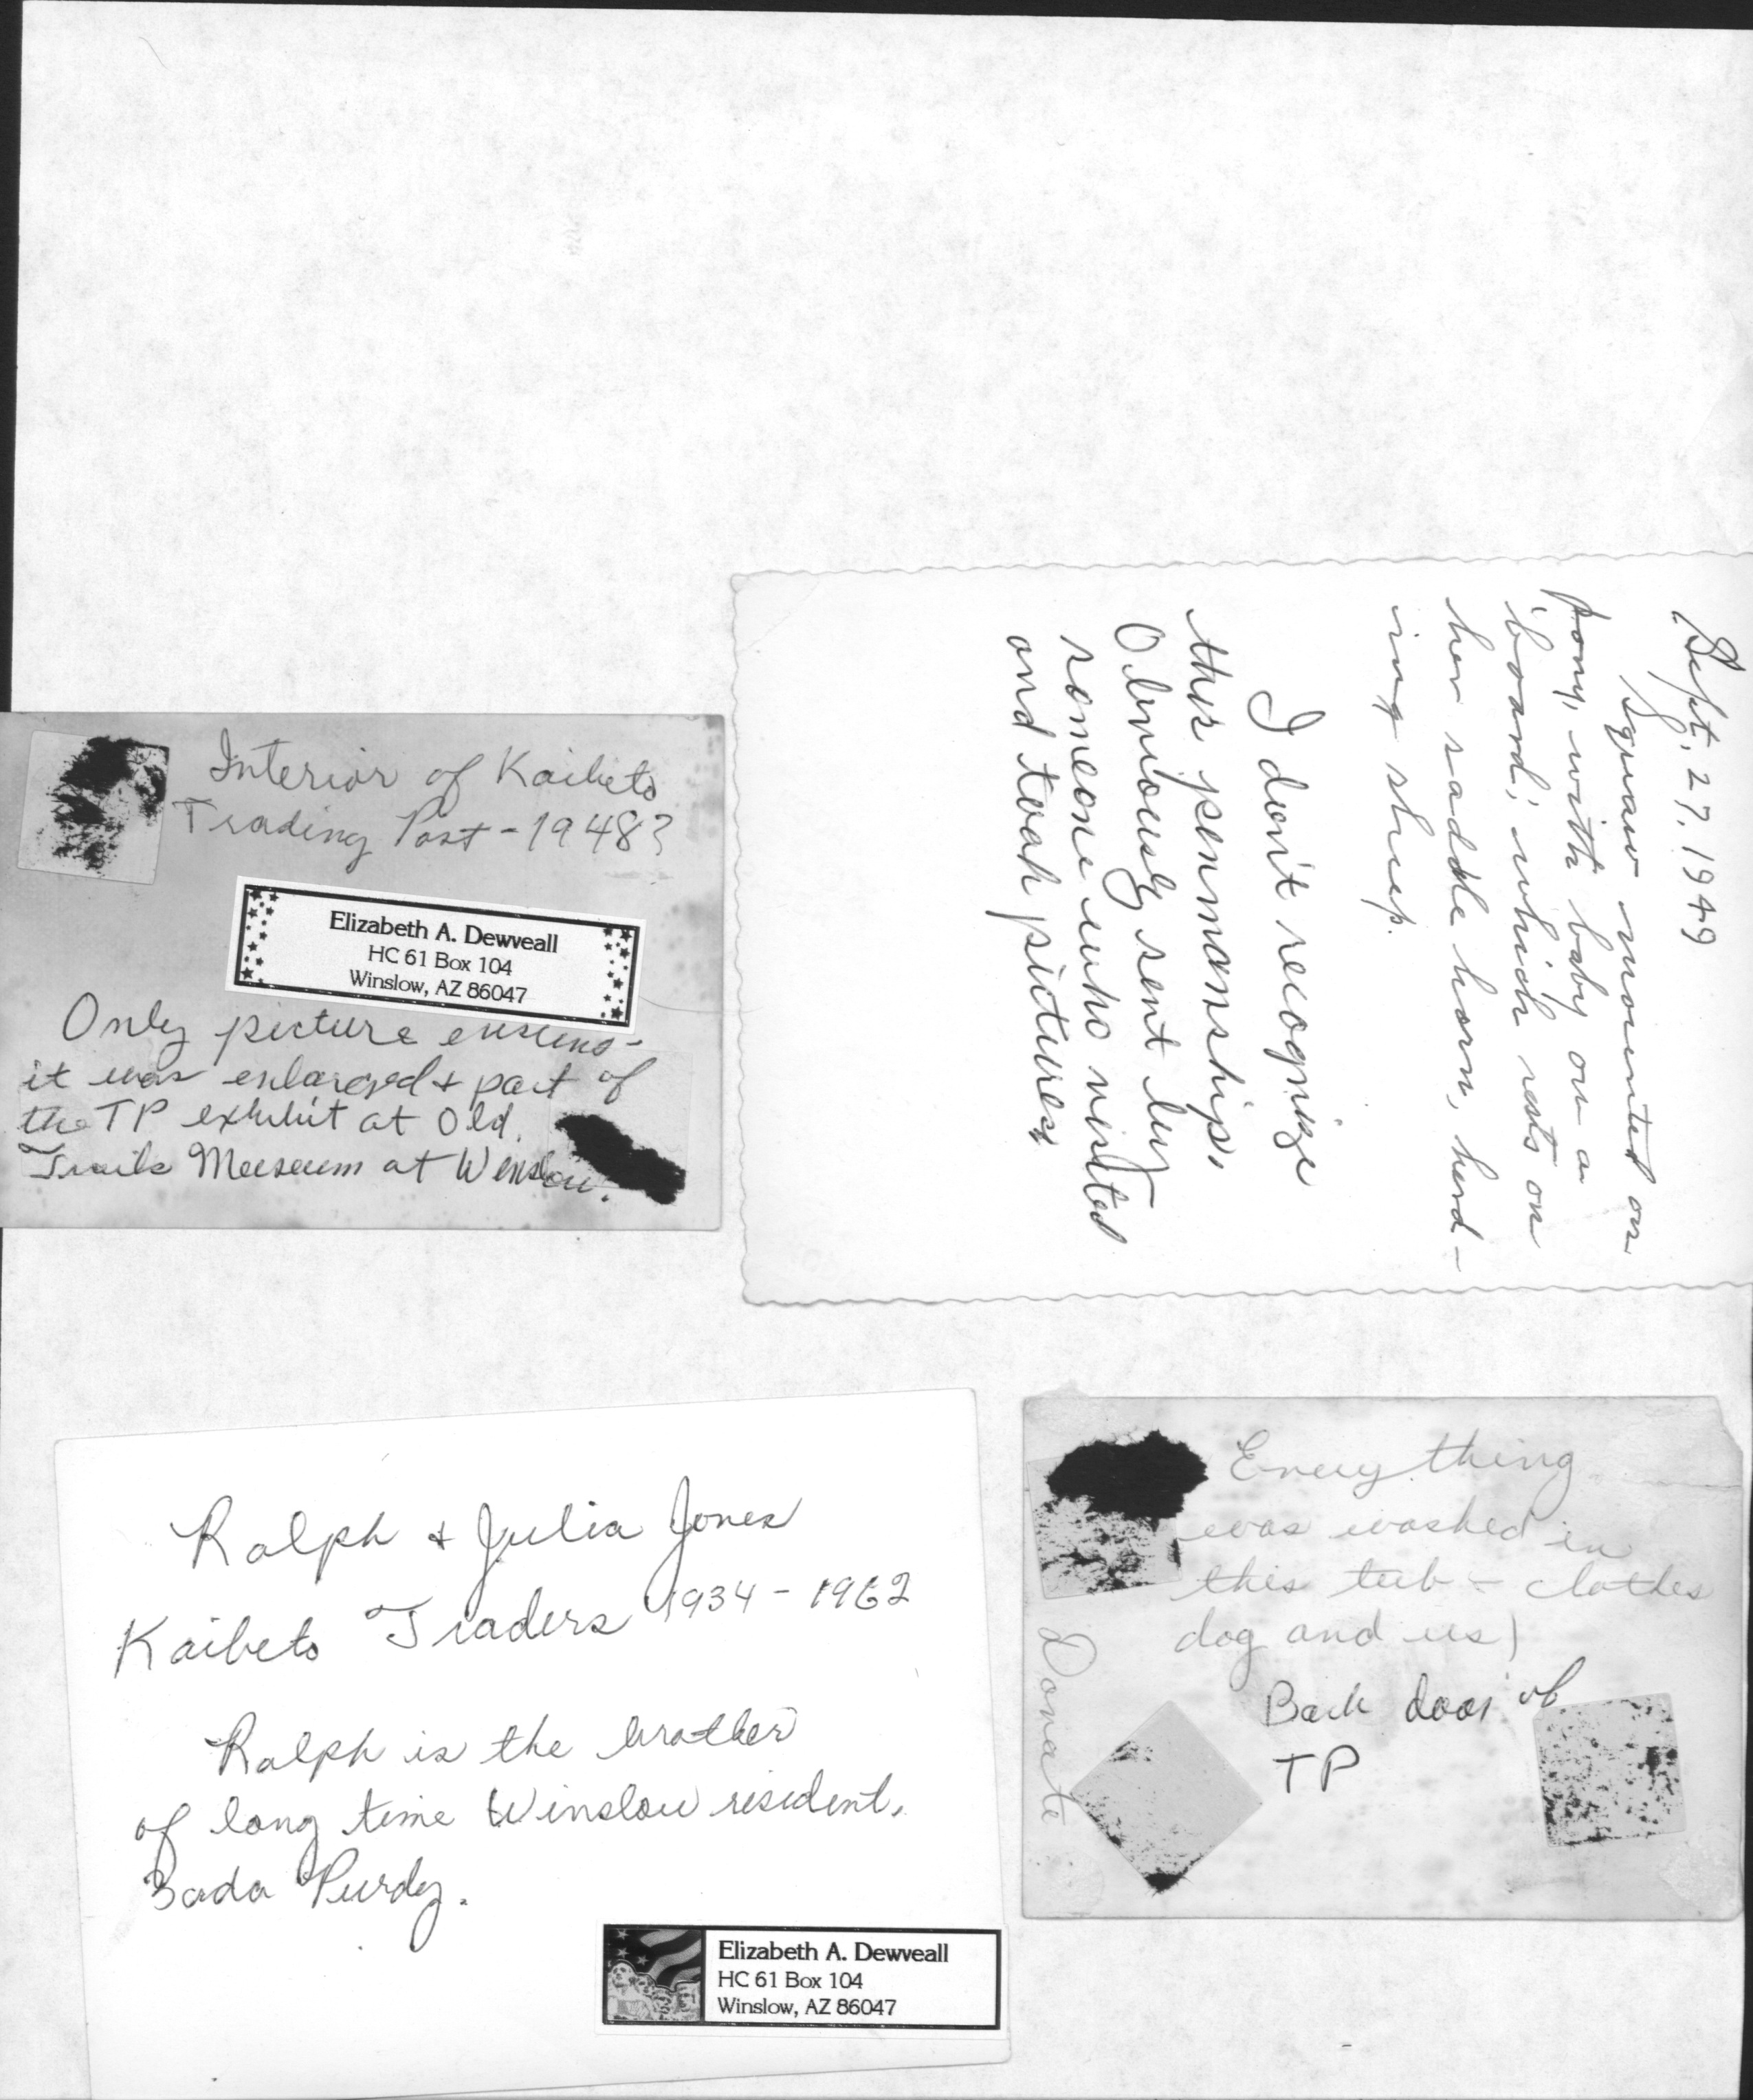 Interior of Kaibeto
Trading Post - 1948?
Elizabeth A. Dewveall
HC 61 Box 104
Winslow, AZ 86047
Only picture
it was enlarged & part of
the TP exhibit at Old
Trails Museum at Winslow.
Sept. 27, 1949
Squaw mounted on
pony, with baby on a
board; which rests on
her saddle horn, herd-
ing sheep.
I don't recognize
this penmanship.
Obviously sent by
someone who visited
and took pictures
Ralph & Julia Jones
Kaibeto Traders 1934 - 1962
Ralph is the brother
of long time Winslow resident,
Zada Purdy.
Elizabeth A. Dewveall
HC 61 Box 104
Winslow, AZ 86047
Everything
was washed in
this tub - clothes
dog and us)
Back door of
TP
Donate